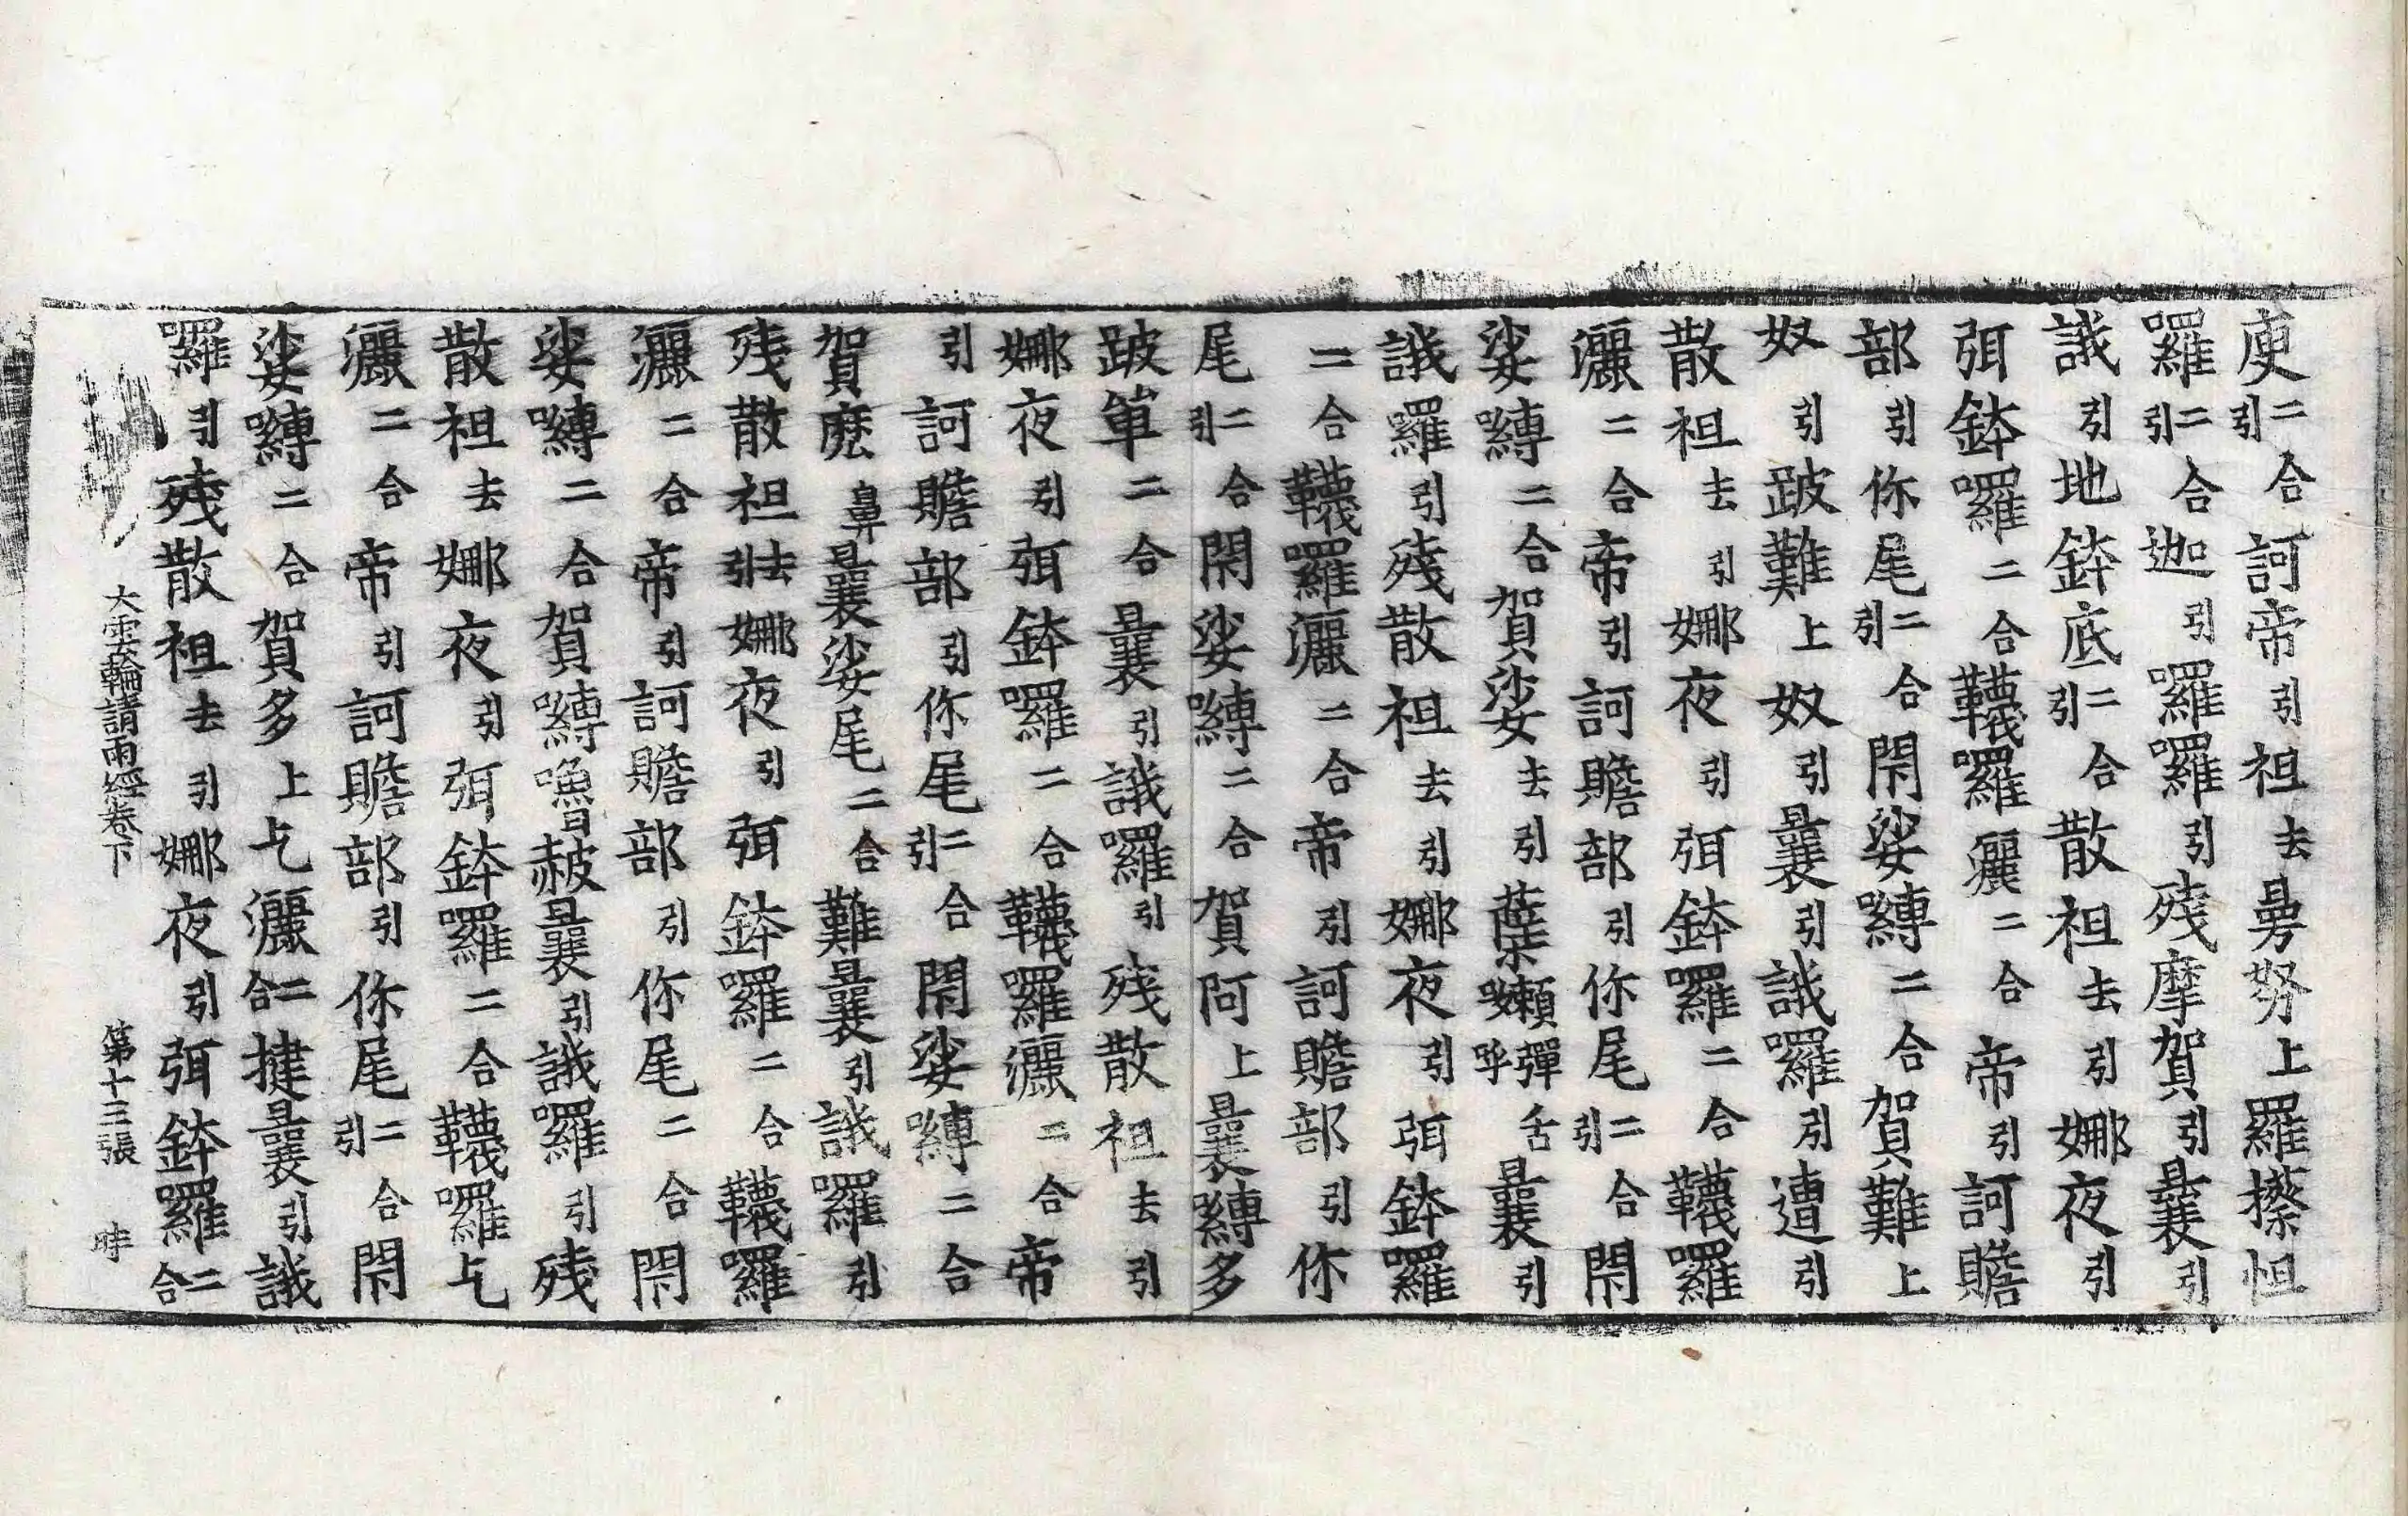 庾二合引訶帝引祖去曩努上羅攃怛
囉二合引迦引囉囉引殘摩賀引曩引
誐引地鉢底二合引散祖去引娜夜引
弭鉢囉二合韈囉灑二合帝引訶贍
部引你尾二合引閇娑嚩二合賀難上
奴引跛難上奴引曩引誐囉引遭引
散祖去引娜夜引弭鉢囉二合韈囉
灑二合帝引訶贍部引你尾二合引閇
娑嚩二合賀娑去引蘖囕彈舌呼曩引
誐囉引殘散祖去引娜夜引弭鉢囉
二合韈囉灑二合帝引訶贍部引你
尾二合引閇娑嚩二合賀阿上曩嚩多
跛單二合曩引誐囉引殘散祖去引
娜夜引弭鉢囉二合韈囉灑二合帝
引訶贍部引你尾二合引閇娑嚩二合
賀麼鼻曩娑尾二合難曩引誐囉引
殘散祖去引娜夜引弭鉢囉二合韈囉
灑二合帝引訶贍部引你尾二合閇
娑嚩二合賀嚩嚕赧曩引誐囉引殘
散祖去娜夜引弭鉢囉二合韈囉乞
灑二合帝引訶贍部引你尾二合引閇
娑嚩二合賀多上乞灑二合揵曩引誐
囉引殘散祖去引娜夜引弭鉢囉二合
大雲輪請雨經卷下 第十三張